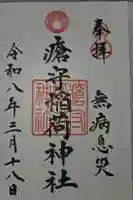 奉拝
無病息災
瘡守稲荷神社
令和八年三月十八日